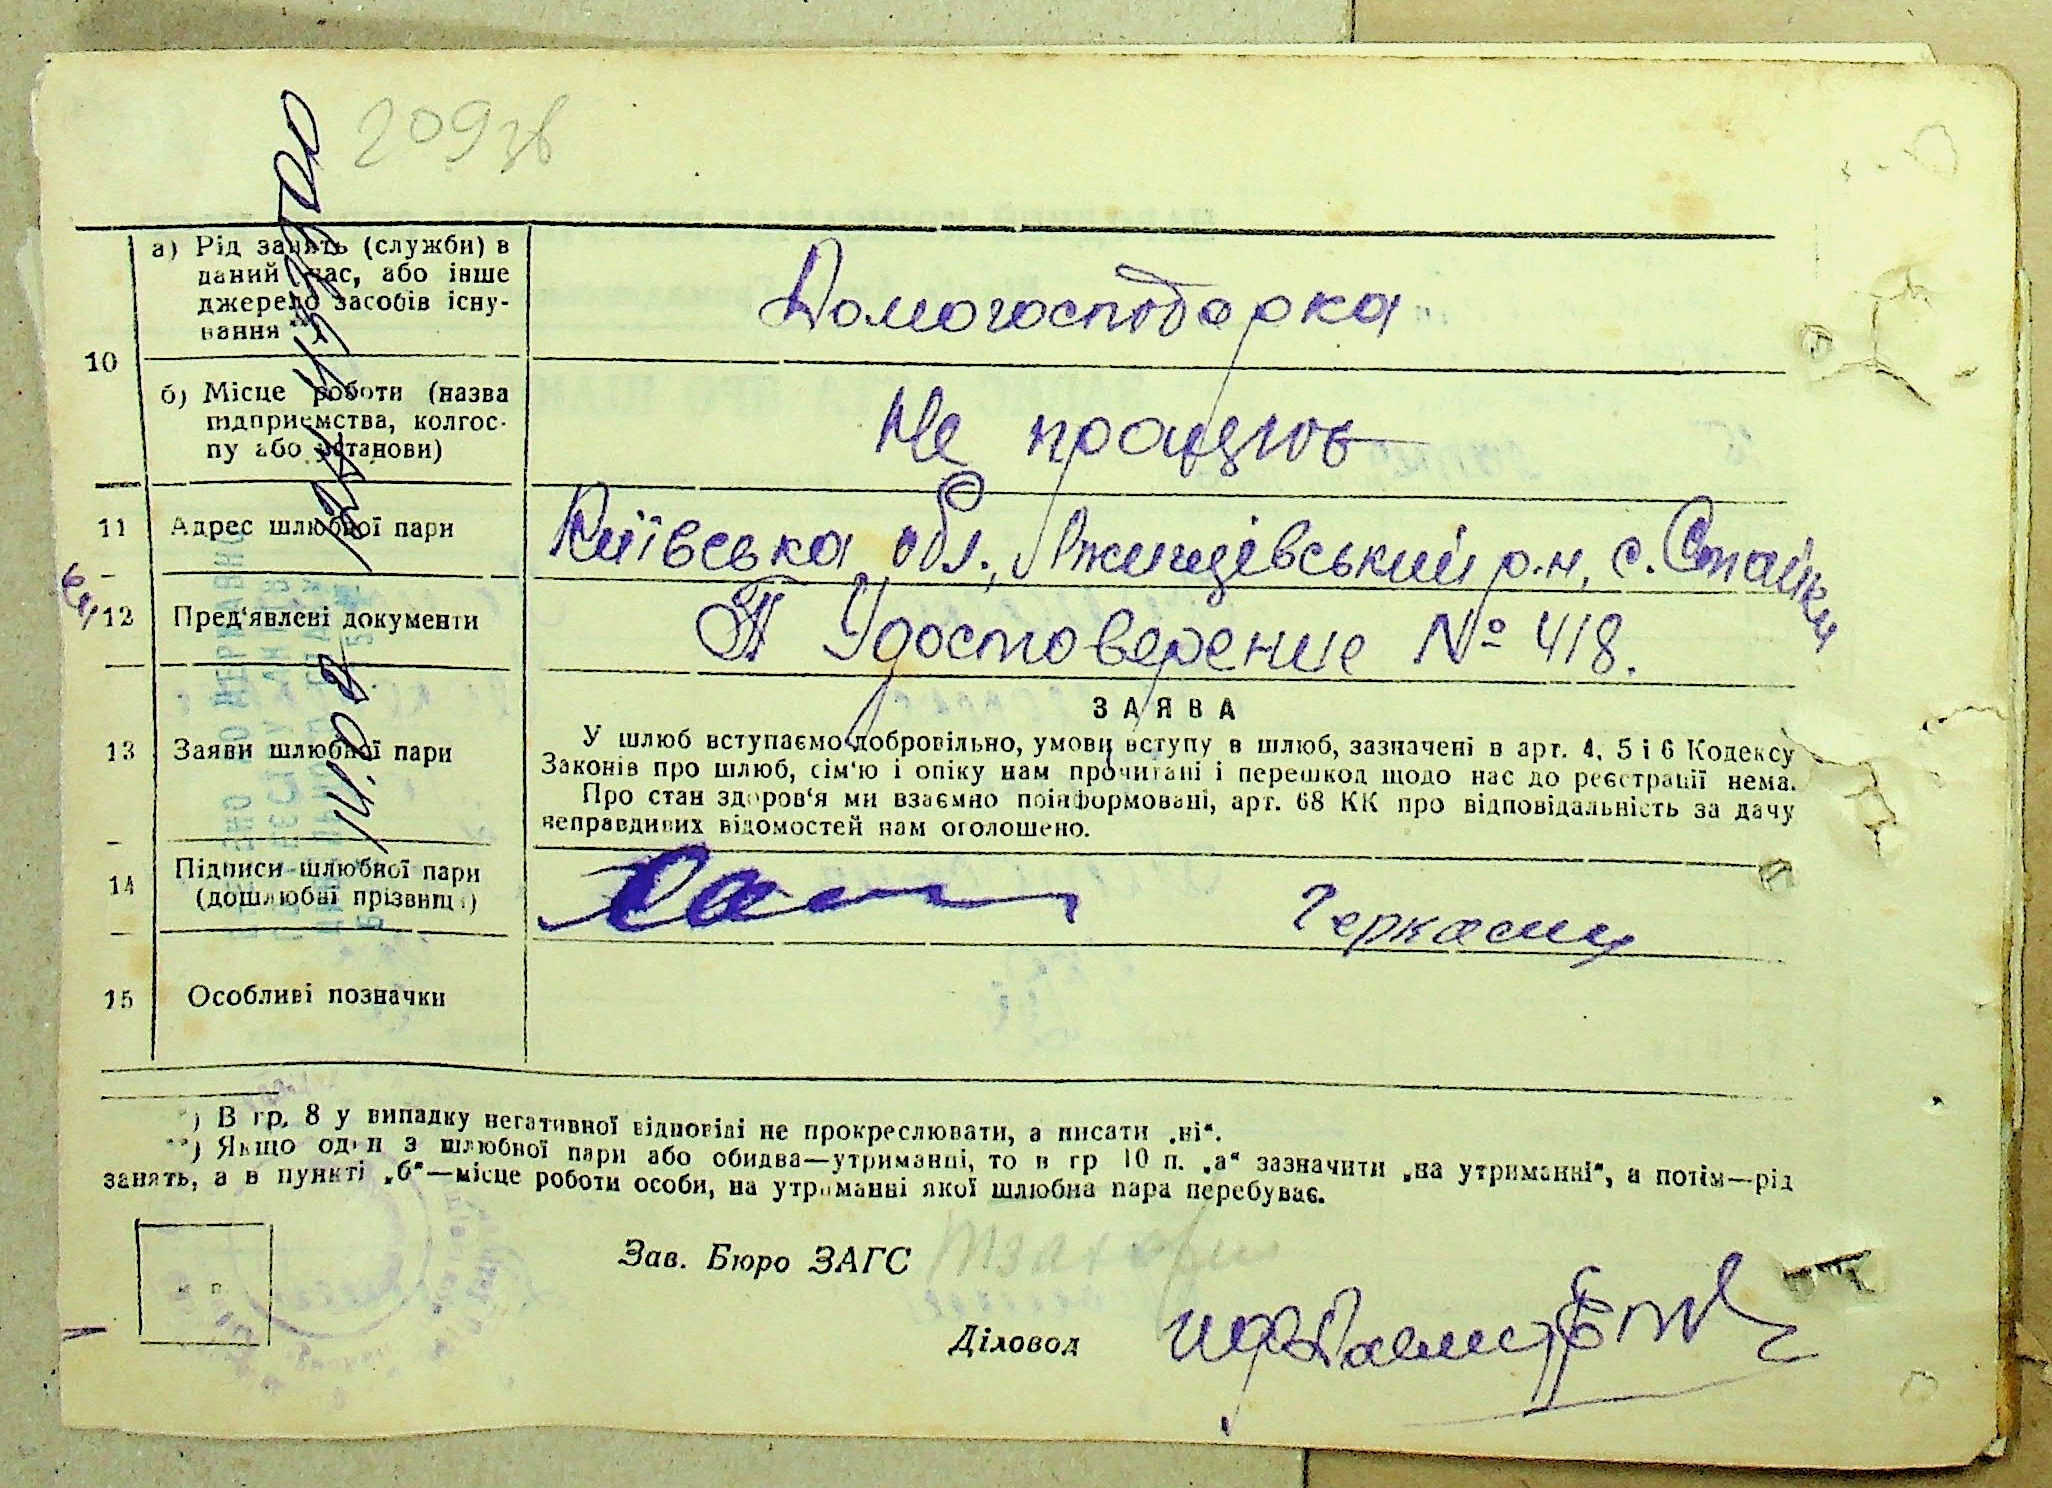 209 зв
а) Рід занять (служби) в
даний час, або інше
джерело засобів існу-
вання **)
Домогосподарка
10
б) Місце роботи (назва
підприємства, колгос-
пу або установи)
Не працює
11 Адрес шлюбної пари
Київська обл., Ржищевський р.н, с. Стайки
12 Пред‘явлені документи
Удостоверение № 418.
13 Заяви шлюбної пари
ЗАЯВА
У шлюб вступаємо добровільно, умови вступу в шлюб, зазначені в арт. 4, 5 і 6 Кодексу
Законів про шлюб, сім‘ю і опіку нам прочитані і перешкод щодо нас до реєстрації нема.
Про стан здоров‘я ми взаємно поінформовані, арт. 68 КК про відповідальність за дачу
неправдивих відомостей нам оголошено.
14 Підписи шлюбної пари
(дошлюбні прізвища)
15 Особливі позначки
*) В гр. 8 у випадку негативної відповіді не прокреслювати, а писати „ні“.
**) Якщо один з шлюбної пари або обидва—утриманці, то в гр 10 п. „а“ зазначити „на утриманні“, а потім—рід
занять, а в пункті „б“—місце роботи особи, на утриманні якої шлюбна пара перебуває.
Зав. Бюро ЗАГС
Діловод